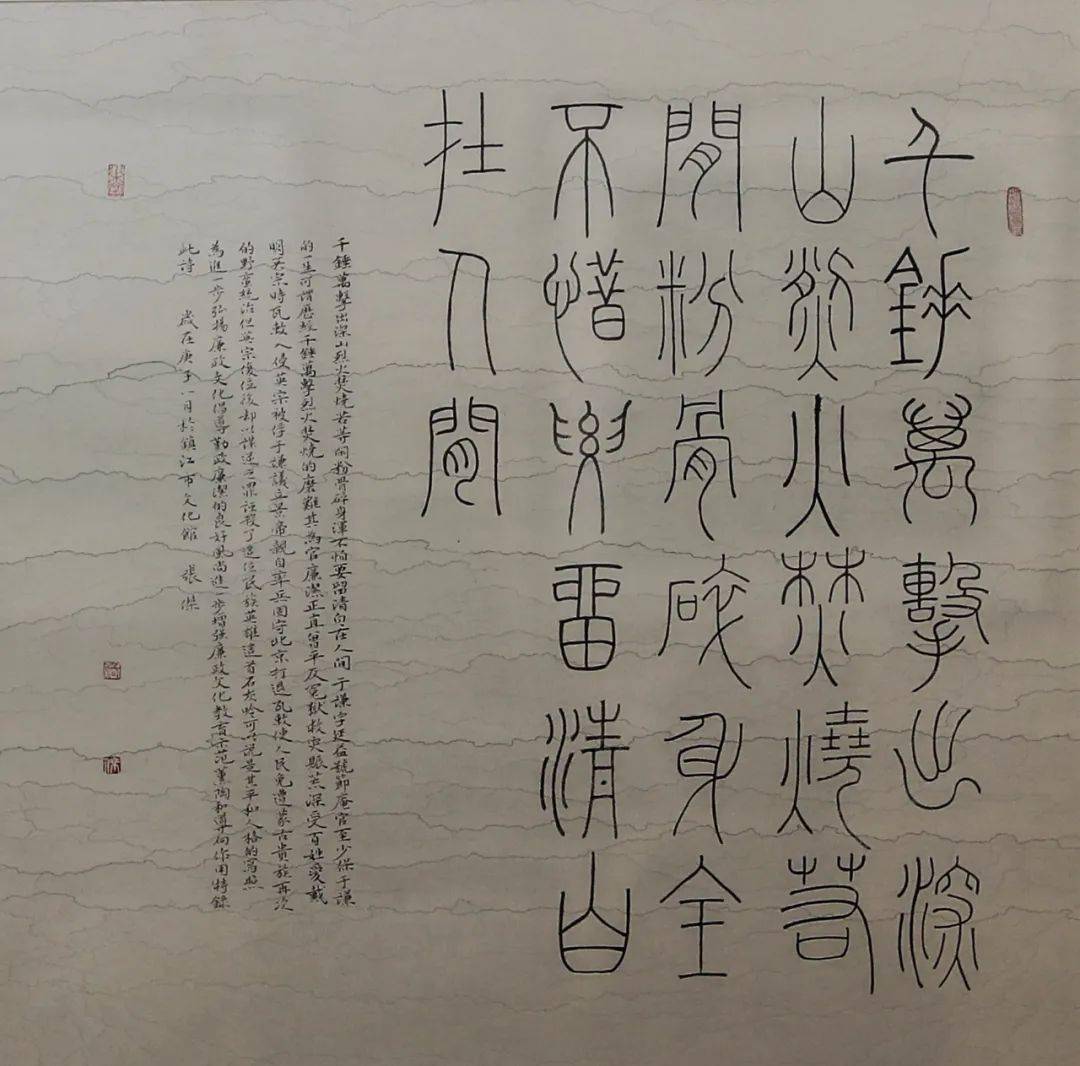 千錘萬擊出深
山烈火焚燒若
閒粉骨碎身全
不惜要留清白
在人閒
千錘萬擊出深山烈火焚燒若等閒粉骨碎身渾不怕要留清白在人间 于謙字廷益號節庵官至少保于謙
的一生可謂歷經千錘萬擊烈火焚燒的磨難其為官廉潔正直曾平反冤獄救災賑荒深受百姓愛戴
明英宗時瓦剌入侵英宗被俘于謙議立景帝親自率兵固守北京打退瓦剌使人民免遭蒙古貴族再次
的野蠻統治但英宗復位後却以謀逆之罪誣殺了這位民族英雄這首石灰吟可以說是其平和人格的寫照
為進一步弘揚廉政文化倡導勤政廉潔的良好風尚進一步增強廉政文化教育示范薰陶和導向作用特錄
此詩 歲在庚子八月於鎮江市文化館 張傑